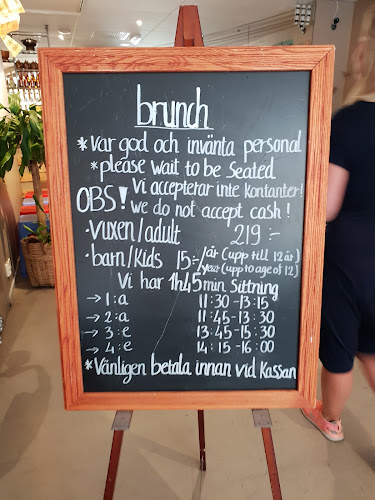 brunch
*Var god och invänta personal
*please wait to be Seated
OBS! Vi accepterar inte kontanter!
we do not accept cash!
·vuxen/adult 219:-
·barn/Kids 15:- /år (upp till 12 år)
/year (up to age of 12)
Vi har 1h45min Sittning
→ 1:a 11:30-13:15
→ 2:a 11:45-13:30
→ 3:e 13:45-15:30
→ 4:e 14:15-16:00
*Vänligen betala innan vid Kassan